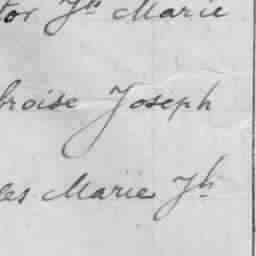 tor Jh Marie
broise Joseph
les Marie Jh